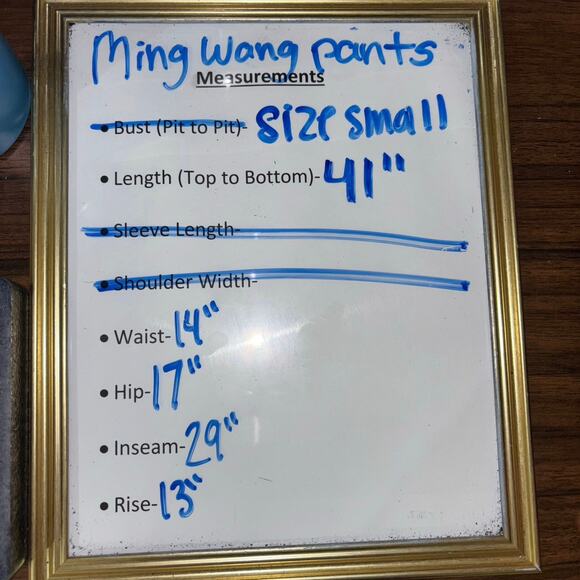 Ming Wang pants
Measurements
• Bust (Pit to Pit)- Size small
• Length (Top to Bottom)- 41"
• Sleeve Length-
• Shoulder Width-
• Waist- 14"
• Hip- 17"
• Inseam- 29"
• Rise- 13"